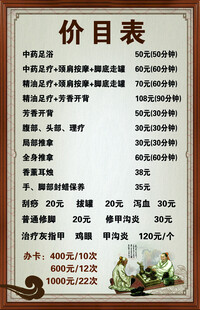 价目表
中药足浴 50元(50分钟)
中药足疗+颈肩按摩+脚底走罐 60元(60分钟)
精油足疗+颈肩按摩+脚底走罐 70元(60分钟)
精油足疗+芳香开背 108元(90分钟)
芳香开背 50元(30分钟)
腹部、头部、理疗 30元(30分钟)
局部推拿 30元(30分钟)
全身推拿 60元(60分钟)
香薰耳烛 38元
手、脚部封蜡保养 35元
刮痧 20元 拔罐 20元 泻血 30元
普通修脚 20元 修甲沟炎 30元
治疗灰指甲 鸡眼 甲沟炎 120元/个
办卡：400元/10次
600元/12次
1000元/22次